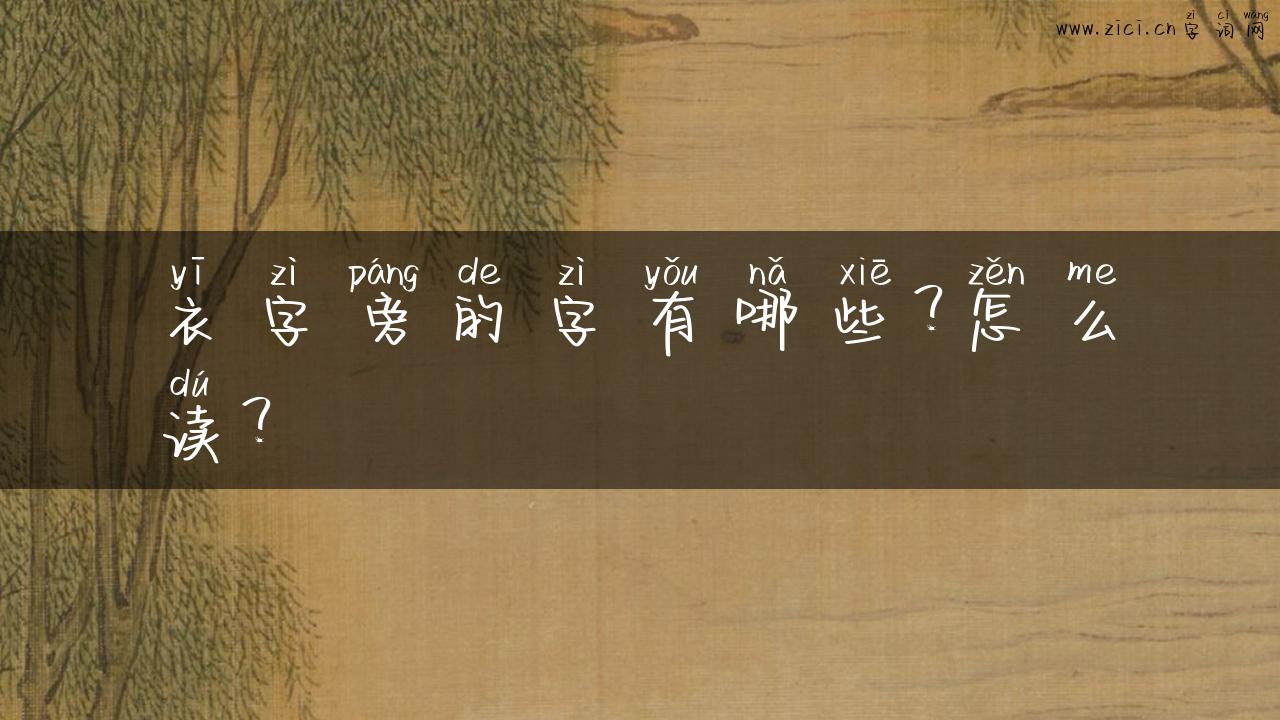 zì cí wǎng
www.zici.cn 字 词 网
yī zì páng de zì yǒu nǎ xiē zěn me
衣 字 旁 的 字 有 哪 些 ? 怎 么
dú
读 ?